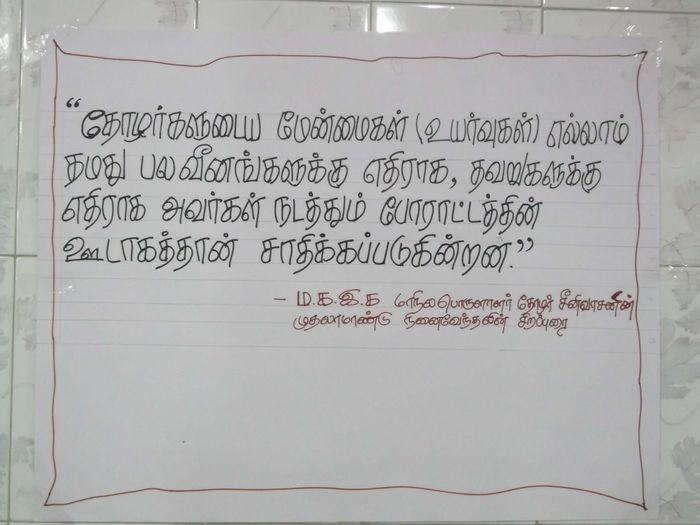 “தோழர்களுடைய மேன்மைகள் (உயர்வுகள்) எல்லாம்
தமது பலவீனங்களுக்கு எதிராக, தவறுகளுக்கு
எதிராக அவர்கள் நடத்தும் போராட்டத்தின்
ஊடாகத்தான் சாதிக்கப்படுகின்றன.”
– ம.க.இ.க மாநில பொருளாளர் தோழர் சீனிவாசனின்
முதலாமாண்டு நினைவேந்தலின் சிறப்புரை